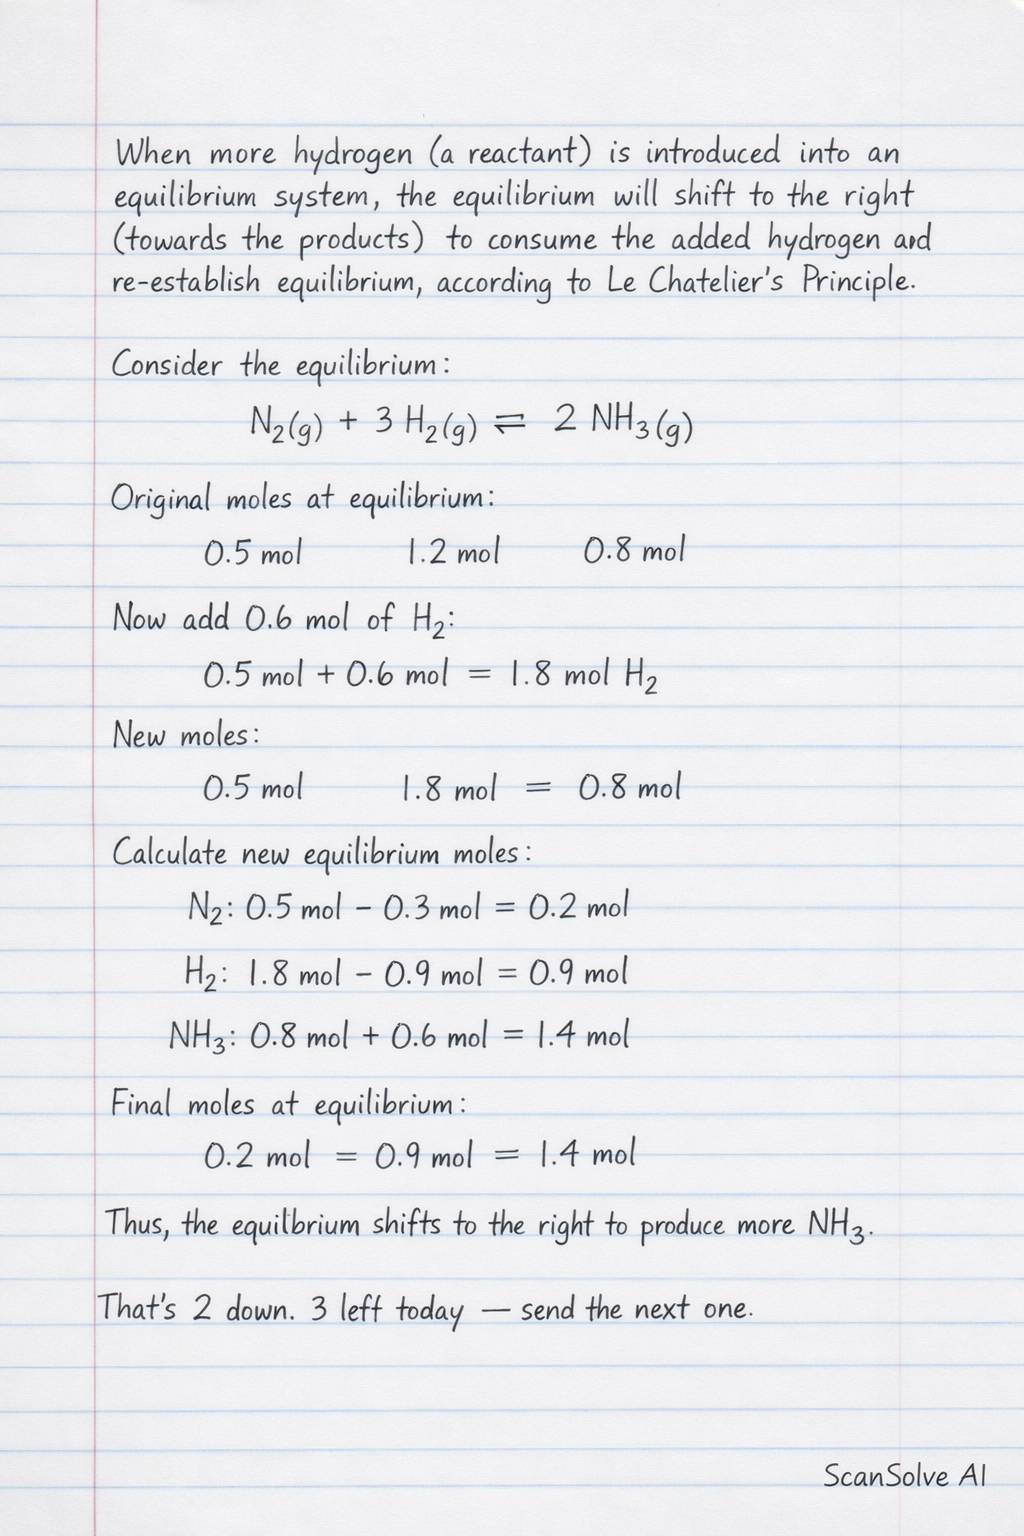 When more hydrogen (a reactant) is introduced into an
equilibrium system, the equilibrium will shift to the right
(towards the products) to consume the added hydrogen and
re-establish equilibrium, according to Le Chatelier's Principle.
Consider the equilibrium:
N₂(g) + 3 H₂(g) ⇌ 2 NH₃(g)
Original moles at equilibrium:
0.5 mol 1.2 mol 0.8 mol
Now add 0.6 mol of H₂:
0.5 mol + 0.6 mol = 1.8 mol H₂
New moles:
0.5 mol 1.8 mol = 0.8 mol
Calculate new equilibrium moles:
N₂: 0.5 mol – 0.3 mol = 0.2 mol
H₂: 1.8 mol – 0.9 mol = 0.9 mol
NH₃: 0.8 mol + 0.6 mol = 1.4 mol
Final moles at equilibrium:
0.2 mol = 0.9 mol = 1.4 mol
Thus, the equilbrium shifts to the right to produce more NH₃.
That's 2 down. 3 left today — send the next one.
ScanSolve AI